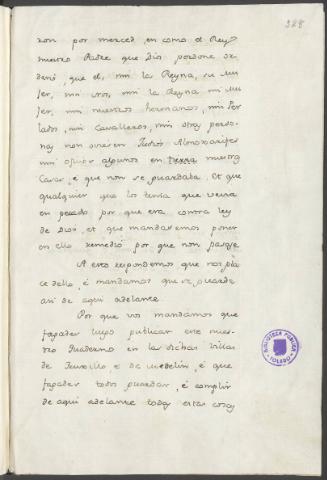 328
ron por merced, en como el Rey
nuestro Padre que Dios perdone or
denó, que él, nin la Reyna, su mu
jer, nin vos, nin la Reyna mi mu
jer, nin nuestros hermanos, nin Per
lados, nin Cavalleros, nin otras perso
nas non oviesen Judios Almoxarifes
nin oficios algunos en tierra nuestra
Casas, é que non se guardaba. Et que
qualquier que los tenia que venia
en pecado por que era contra ley
de Dios, et que mandasemos poner
en ello remedió por que non pasase
A esto respondemos que nos pla
ce dello, é mandamos que se guarde
asi de aqui adelante.
Por que vos mandamos que
fagades luego publicar este nues
tro Quaderno en las dichas Villas
de Truxillo e de Medelin, é que
fagades todos guardar, é complir
de aqui adelante todas estas cosas
BIBLIOTECA PUBLICA
TOLEDO